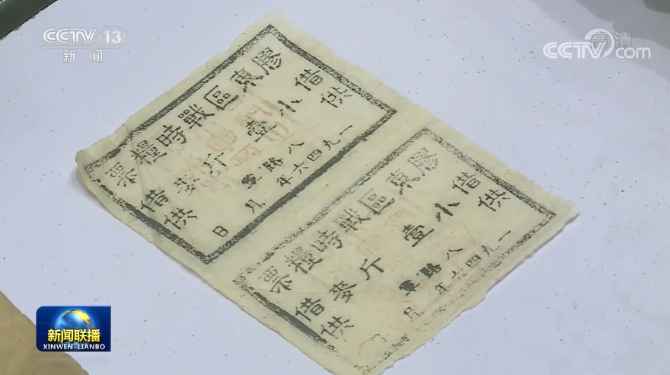 CCTV 13
新闻
CCTV.com
高清
膠東區戰時糧票
借供
小壹斤麥
借供
八路軍
一九四六年月日
膠東區戰時糧票
借供
小壹斤麥
借供
八路軍
一九四六年月
新闻联播
XINWEN-LIANBO